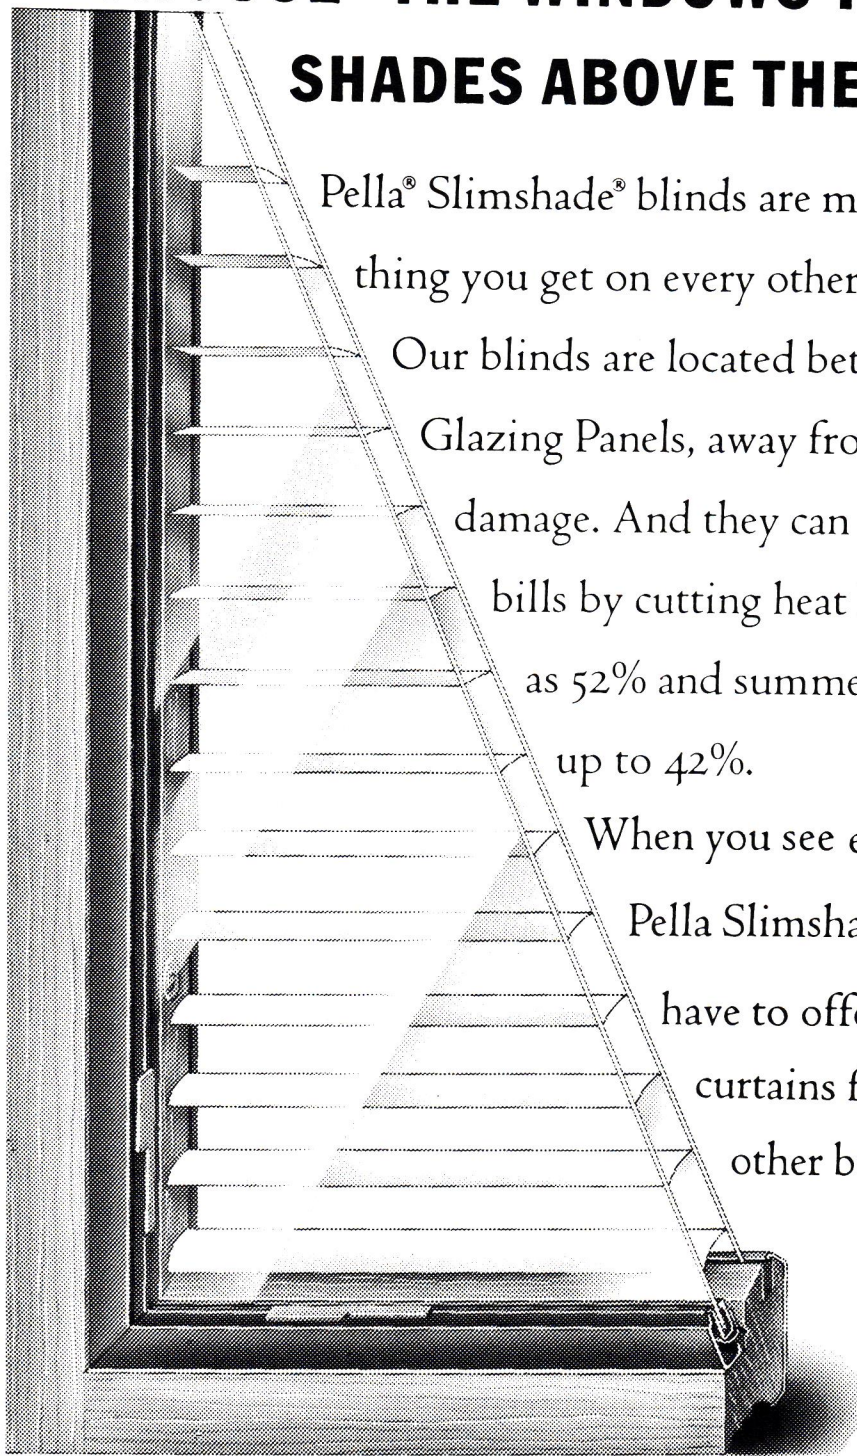 THE WINDOWS
SHADES ABOVE THE
Pella® Slimshade® blinds are m
thing you get on every other
Our blinds are located bet
Glazing Panels, away fro
damage. And they can
bills by cutting heat
as 52% and summe
up to 42%.
When you see e
Pella Slimsha
have to offe
curtains f
other b